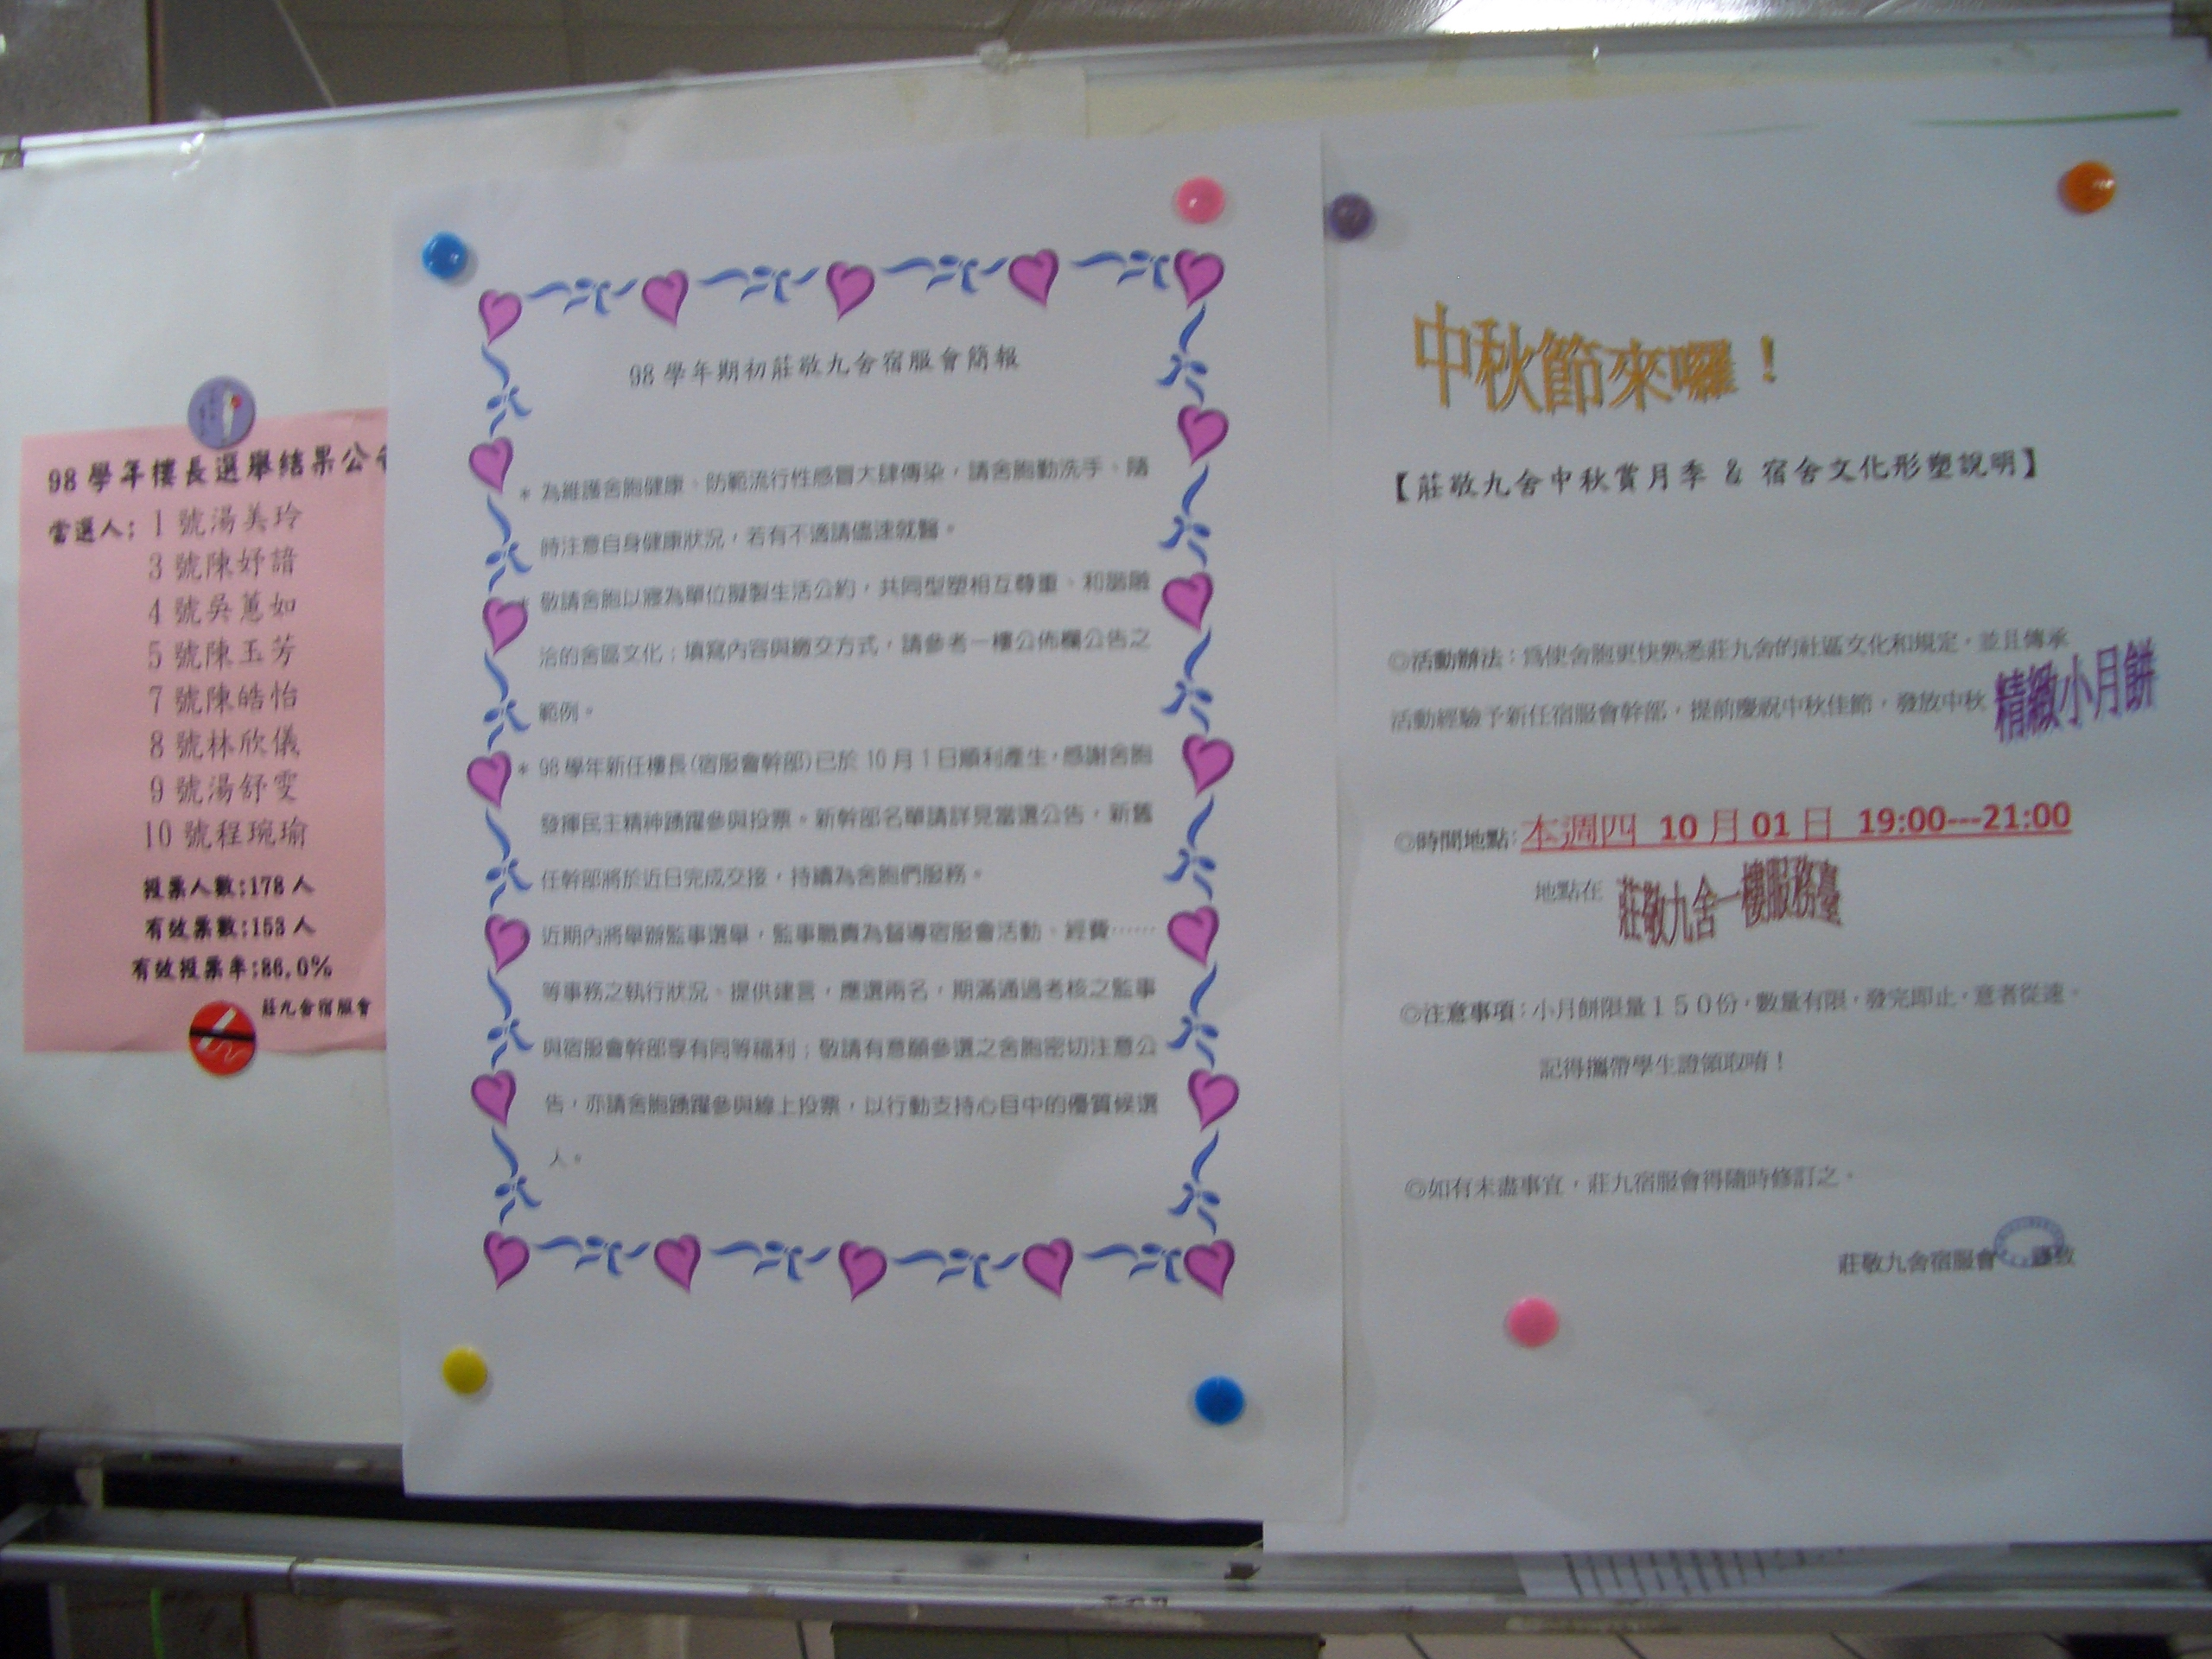 98 學年樓長選舉結果公
當選人: 1 號湯美玲
3 號陳妤諳
4 號吳蕙如
5 號陳玉芳
7 號陳皓怡
8 號林欣儀
9 號湯舒雯
10 號程琬瑜
投票人數:178 人
有效票數:153 人
有效投票率:86.0%
莊九舍宿服會
98 學年期初莊敬九舍宿服會簡報
* 為維護舍胞健康、防範流行性感冒大肆傳染，請舍胞勤洗手、隨
時注意自身健康狀況，若有不適請儘速就醫。
* 敬請舍胞以寢為單位擬製生活公約，共同型塑相互尊重、和諧融
洽的舍區文化；填寫內容與繳交方式，請參考一樓公佈欄公告之
範例。
* 98 學年新任樓長(宿服會幹部)已於 10 月 1 日順利產生，感謝舍胞
發揮民主精神踴躍參與投票。新幹部名單請詳見當選公告，新舊
任幹部將於近日完成交接，持續為舍胞們服務。
近期內將舉辦監事選舉，監事職責為督導宿服會活動、經費……
等事務之執行狀況、提供建言，應選兩名，期滿通過考核之監事
與宿服會幹部享有同等福利；敬請有意願參選之舍胞密切注意公
告，亦請舍胞踴躍參與線上投票，以行動支持心目中的優質候選
人。
中秋節來囉！
【莊敬九舍中秋賞月季 & 宿舍文化形塑說明】
◎活動辦法：為使舍胞更快熟悉莊九舍的社區文化和規定，並且傳承
活動經驗予新任宿服會幹部，提前慶祝中秋佳節，發放中秋 精緻小月餅
◎時間地點：本週四 10 月 01 日 19:00---21:00
地點在 莊敬九舍一樓服務臺
◎注意事項：小月餅限量１５０份，數量有限，發完即止，意者從速。
記得攜帶學生證領取唷！
◎如有未盡事宜，莊九宿服會得隨時修訂之。
莊敬九舍宿服會 謹啟